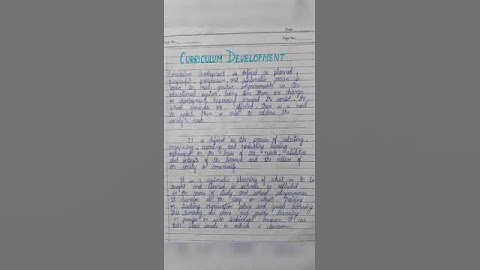 Date
Page No.
CURRICULUM DEVELOPMENT
Curriculum development is defined as planned,
purposeful, progressive, and systematic process in
order to create positive improvements in the
educational system. Every time there are changes
or developments happening around the world, the
school curricula are affected. There is a need
to update them in order to address the
society's need.
It is defined as the process of selecting,
organizing, executing and evaluating learning
experiences on the basis of the needs, abilities
and interests of the learners and the nature of
the society or community.
It is a systematic planning of what is to be
taught and learned in schools as reflected
in the courses of study and school programmes.
It describes all the ways in which
or teaching organisation plans and guides learning.
This learning
in groups or with individual learners. It can
take place inside or outside a classroom.